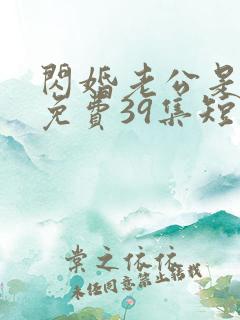 閃婚老公是
免費39集短
棠之依依
未任同意禁止轉載